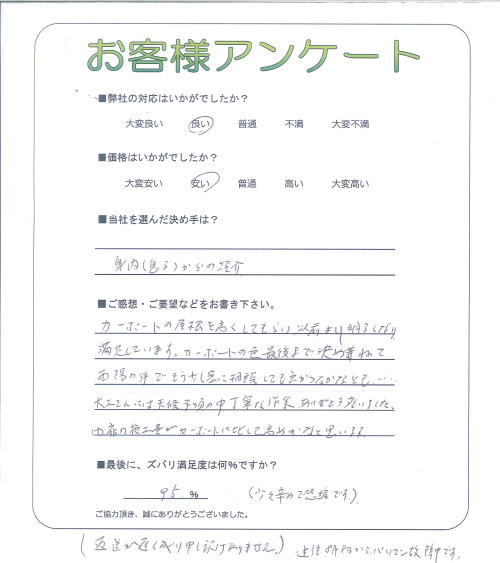 お客様アンケート
■弊社の対応はいかがでしたか？
大変良い 良い 普通 不満 大変不満
■価格はいかがでしたか？
大変安い 安い 普通 高い 大変高い
■当社を選んだ決め手は？
身内(息子)からの紹介
■ご感想・ご要望などをお書き下さい。
カーポートの屋根を高くしてもらい以前より明るくなり
満足しています。カーポートの色最後まで決め兼ねて
の件でもう少し相談しても良かったかなとも、……
大工さんには天候不順の中丁寧な作業ありがとう座いました。
の施工費がカーポートに比して高めかなと思います。
■最後に、ズバリ満足度は何％ですか？
95 ％ (少々辛めで恐縮です)
ご協力頂き、誠にありがとうございました。
(返送が遅く成り申し訳けありません。) パソコン故障中です。